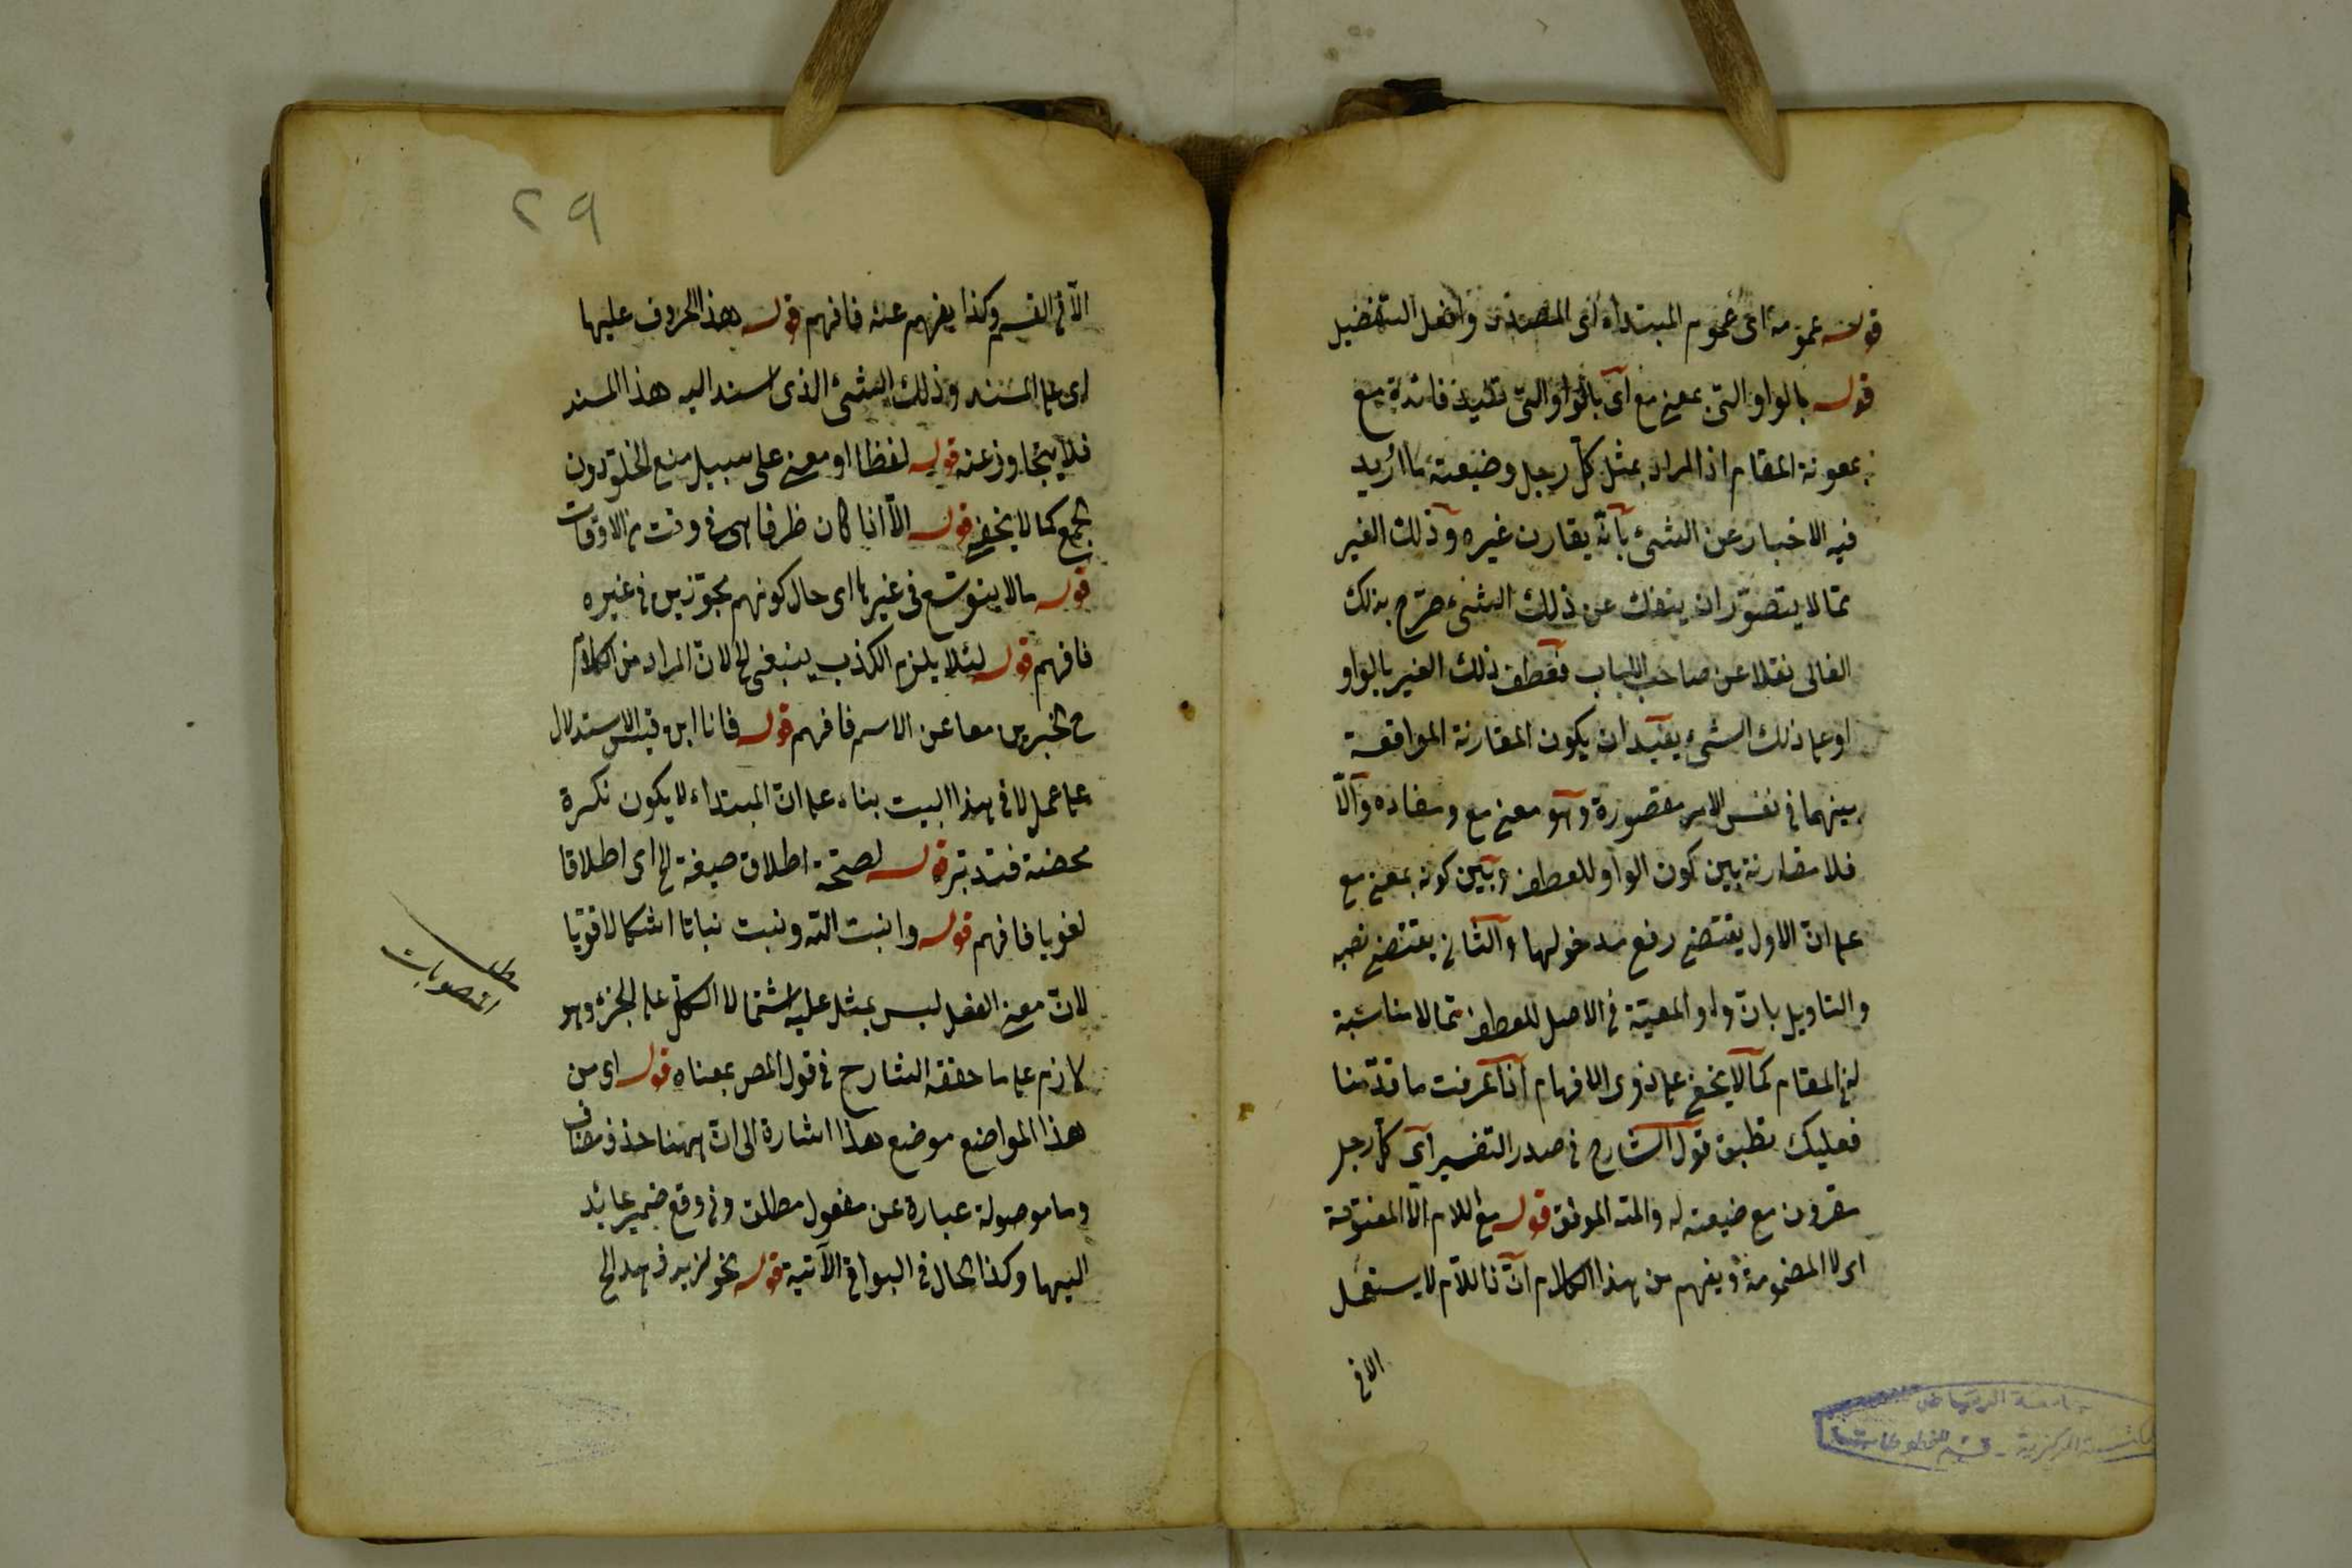 قوله عمومه اى عموم المبتداء اى المصدر وافعل التفضيل
قوله بالواو التى بمعنى مع اى بالواو التى تفيد فائدة مع
بمعونة المقام اذ المراد بمثل كل رجل وضيعته ما اريد
فيه الاخبار عن الشئ بانه يقارن غيره وذلك الغير
مما لا يتصور ان ينفك عن ذلك الشئ صرح بذلك
الفالى نقلا عن صاحب اللباب فعطف ذلك الغير بالواو
او على ذلك الشئ يفيد ان يكون المقارنة الواقعة
بينهما فى نفس الامر مقصورة وهو معنى مع ومفاده والا
فلا مقارنة بين كون الواو للعطف وبين كونه بمعنى مع
على ان الاول يقتضى رفع مدخولها والثانى يقتضى نصبه
والتاويل بان واو المعية فى الاصل للعطف مما لا مناسبة
له المقام كما لا يخفى على ذوى الافهام اذا عرفت ما قدمنا
فعليك تطبيق قول الشارح فى صدر التفسير اى كل رجل
مقرون مع ضيعته له والله الموفق قوله مع اللام الا المفتوحة
اى لا المضمومة ويفهم من هذا الكلام ان ذا اللام لا يستعمل
الا فى
جامعة الرياض
المكتبة المركزية - قسم المخطوطات
٢٩
الا فى القسم وكذا يفهم عنه فافهم قوله هذا الحروف عليها
اى على المسند وذلك الشئ الذى اسند اليه هذا المسند
فلا يتجاوز عنه قوله لفظا او معنى على سبيل منع الخلو دون
الجمع كما لا يخفى قوله الا اذا كان ظرفا اى فى وقت من الاوقات
قوله ما لا يتوسع فى غيرها اى حال كونهم مجوزين فى غيره
فافهم قوله لئلا يلزم الكذب ينبغى الخ لان المراد من الكلام
ح الخبرين معا عن الاسم فافهم قوله فانا ابن قيس الاستدلال
على عمل لا فى هذا البيت بناء على ان المبتداء لا يكون نكرة
محضة فتدبر قوله لصحة اطلاق صيغة الخ اى اطلاقا
لغويا فافهم قوله وانبت الله ونبت نباتا اشكالا قويا
لان معنى الفعل ليس بمشتمل عليه اشتمال الكل على الجزء وهو
لازم على ما حققه الشارح فى قول المص بمعناه قوله اى من
هذا المواضع موضع هذا اشارة الى ان ههنا حذف مضاف
وما موصولة عبارة عن مفعول مطلق وفى وقع ضمير عائد
اليها وكذا الحال فى البواقى الآتية قوله نحو لزيد
المنصوبات